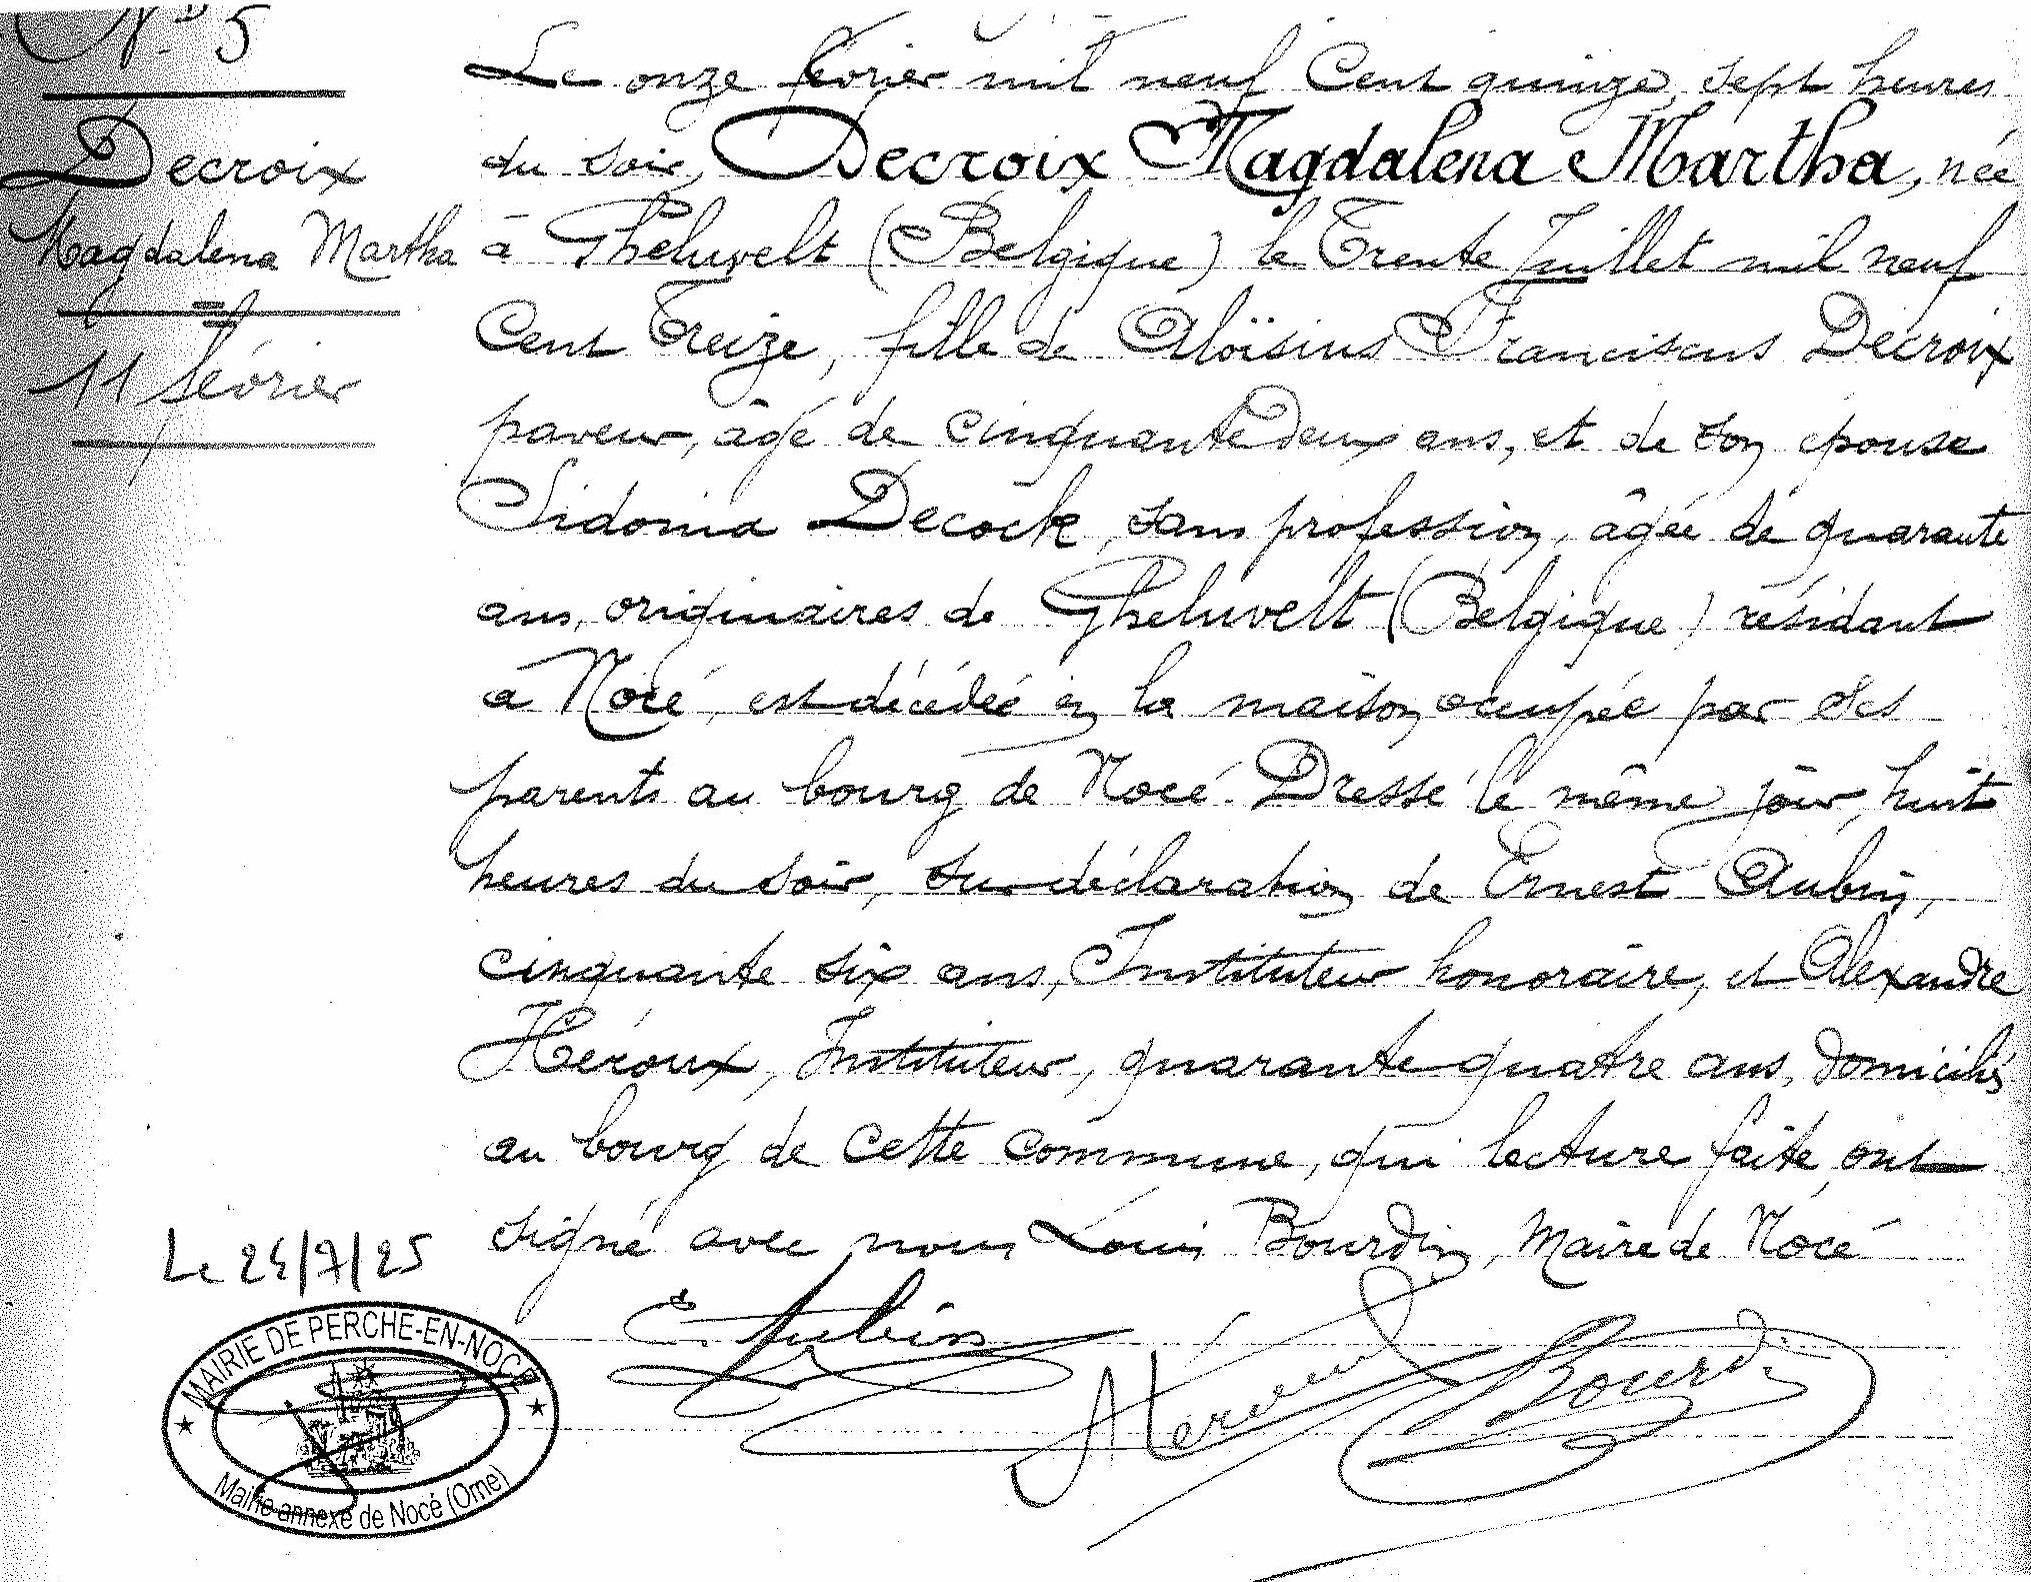 N° 5
Decroix
Magdalena Martha
11 février
Le onze février mil neuf Cent quinze, sept heures
du soir, Decroix Magdalena Martha, née
à Gheluvelt (Belgique) le Trente Juillet mil neuf
Cent Treize, fille de Aloïsius Franciscus Decroix
paveur, âgé de cinquante deux ans, et de son épouse
Sidonia Decock, sans profession, âgée de quarante
ans, originaires de Gheluvelt (Belgique) résidant
à Nocé, est décédée en la maison occupée par ses
parents au bourg de Nocé. Dressé le même jour, huit
heures du soir, sur déclaration de Ernest Aubin,
cinquante six ans, Instituteur honoraire, et Alexandre
Héroux, Instituteur, quarante quatre ans, domiciliés
au bourg de cette commune, qui lecture faite, ont
signé avec nous Louis Bourdin, Maire de Nocé
E. Aubin
AHéroux
Bourdin
Le 24/7/25
MAIRIE DE PERCHE-EN-NOCÉ
Mairie annexe de Nocé (Orne)